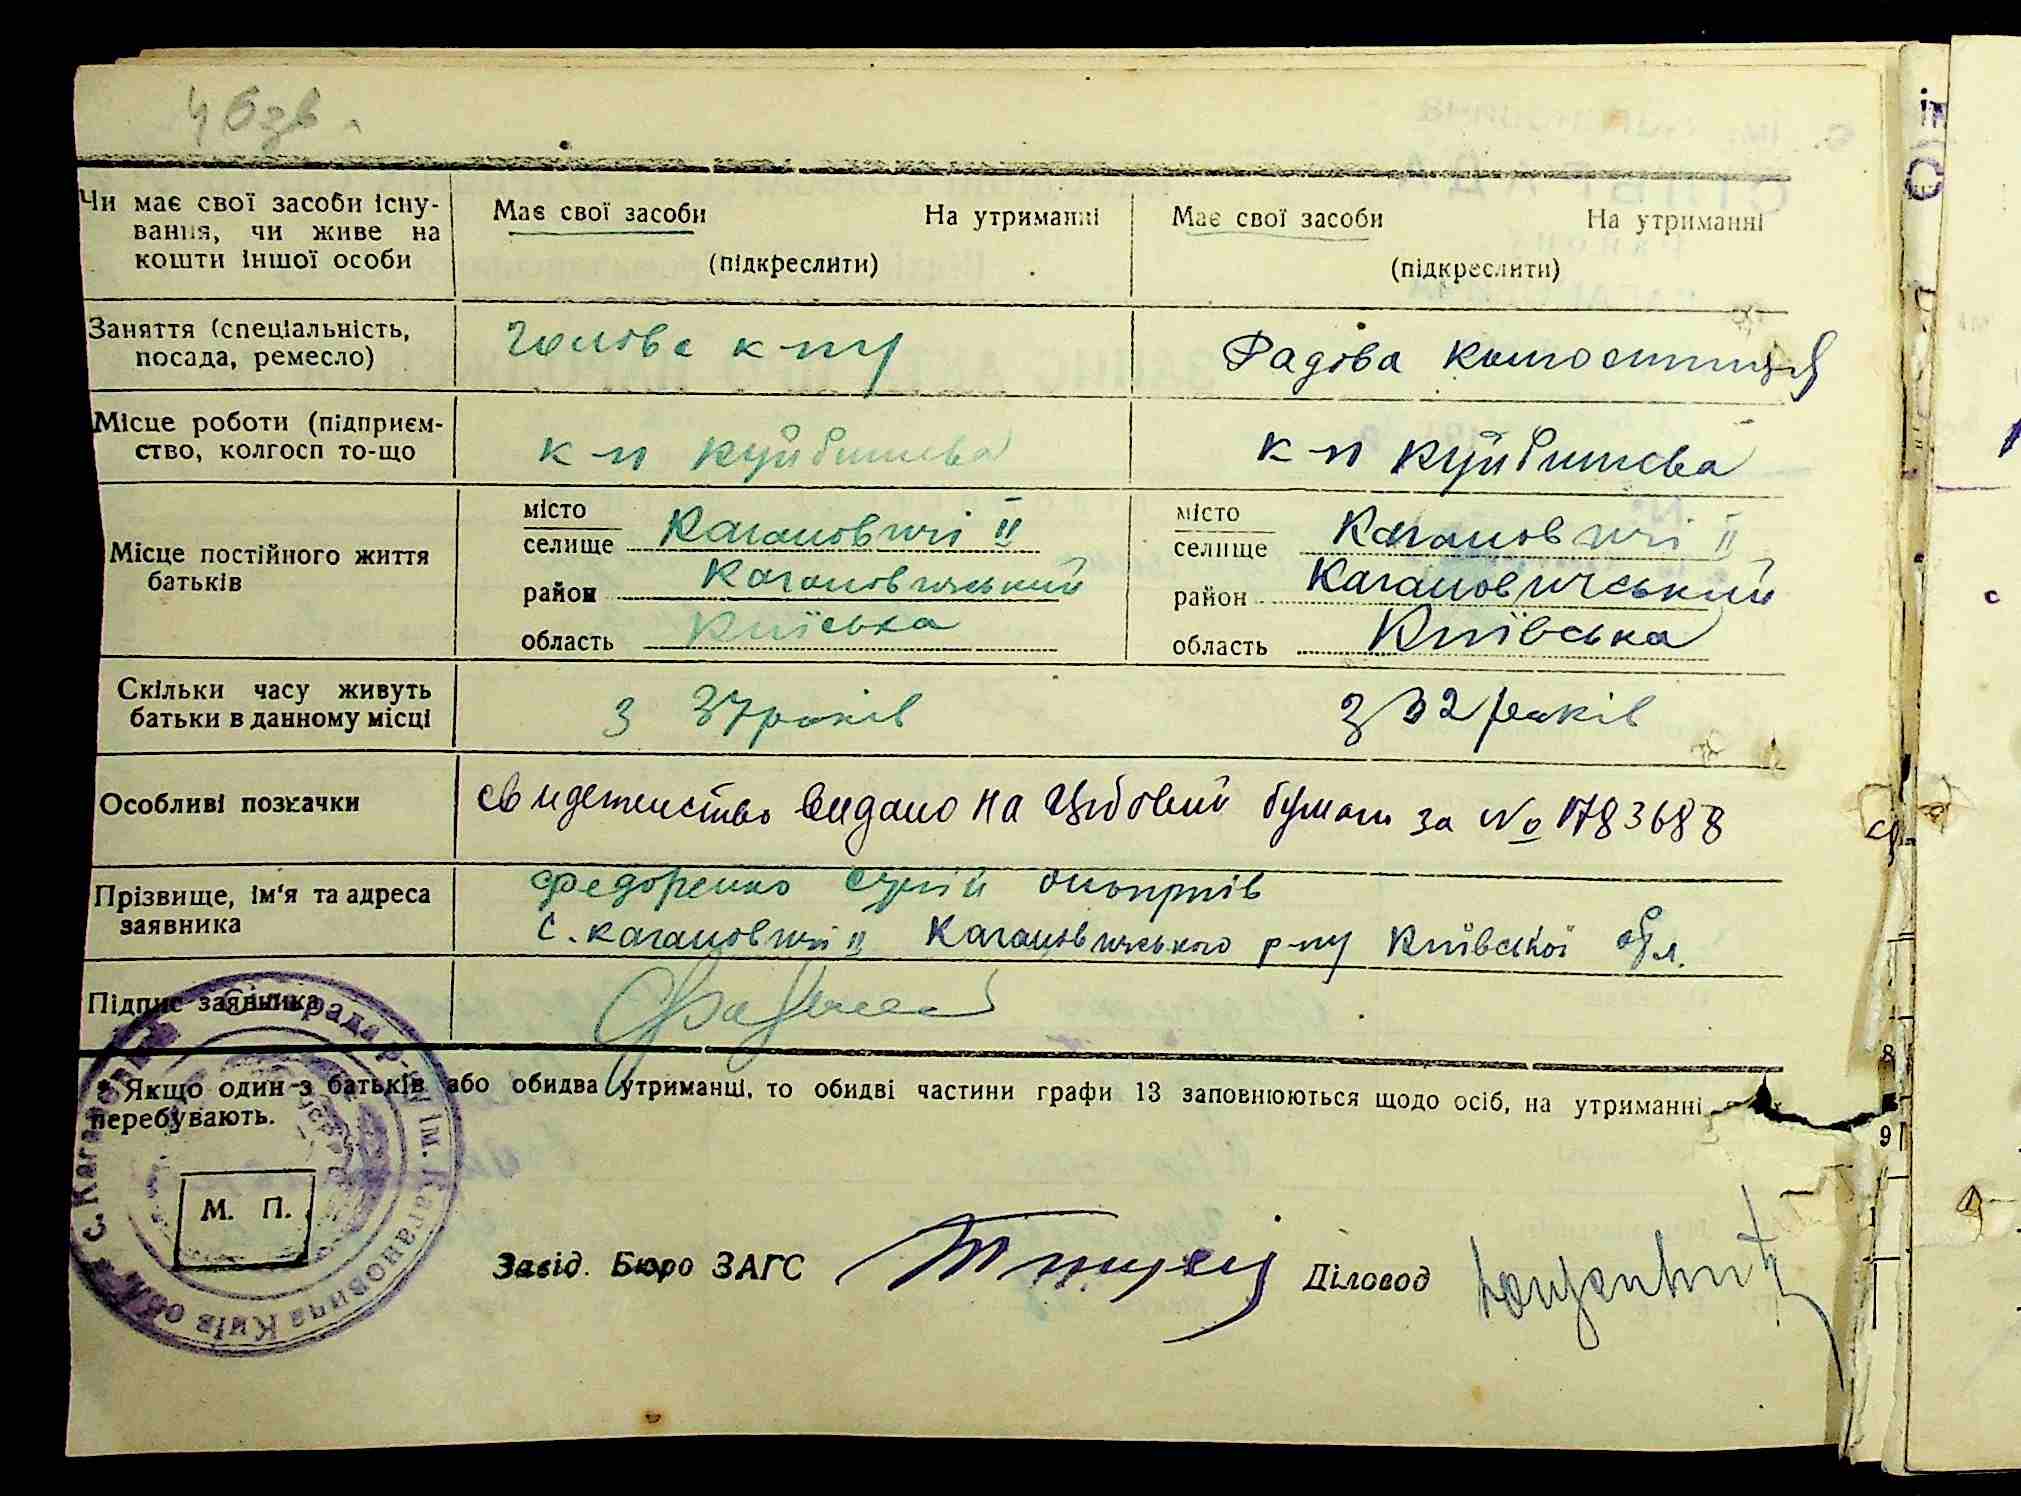 Чи має свої засоби існу-
вання, чи живе на
кошти іншої особи
Має свої засоби На утриманні
(підкреслити)
Має свої засоби На утриманні
(підкреслити)
Заняття (спеціальність,
посада, ремесло)
Голова к-пу
Радова
Місце роботи (підприєм-
ство, колгосп то-що
к-п Куйбишева
к-п Куйбишева
Місце постійного життя
батьків
місто
селище Кагановичі II
район Кагановичський
область Київська
місто
селище Кагановичі II
район Кагановичський
область Київська
Скільки часу живуть
батьки в данному місці
з 37 років
з 32 років
Особливі позначки
видано на бумаги за № 1783688
Прізвище, ім'я та адреса
заявника
Федоренко
С. Кагановичі II Кагановичського р-ну Київської обл.
Підпис заявника
* Якщо один з батьків або обидва утриманці, то обидві частини графи 13 заповнюються щодо осіб, на утриманні
перебувають.
М. П.
Завід. Бюро ЗАГС
Діловод